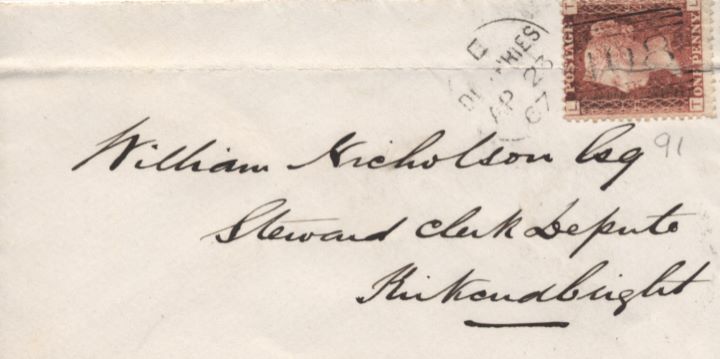 DUMFRIES
AP 23
67
POSTAGE
ONE PENNY
L
T
108
91
William Nicholson Esq
Steward Clerk Depute
Kirkcudbright